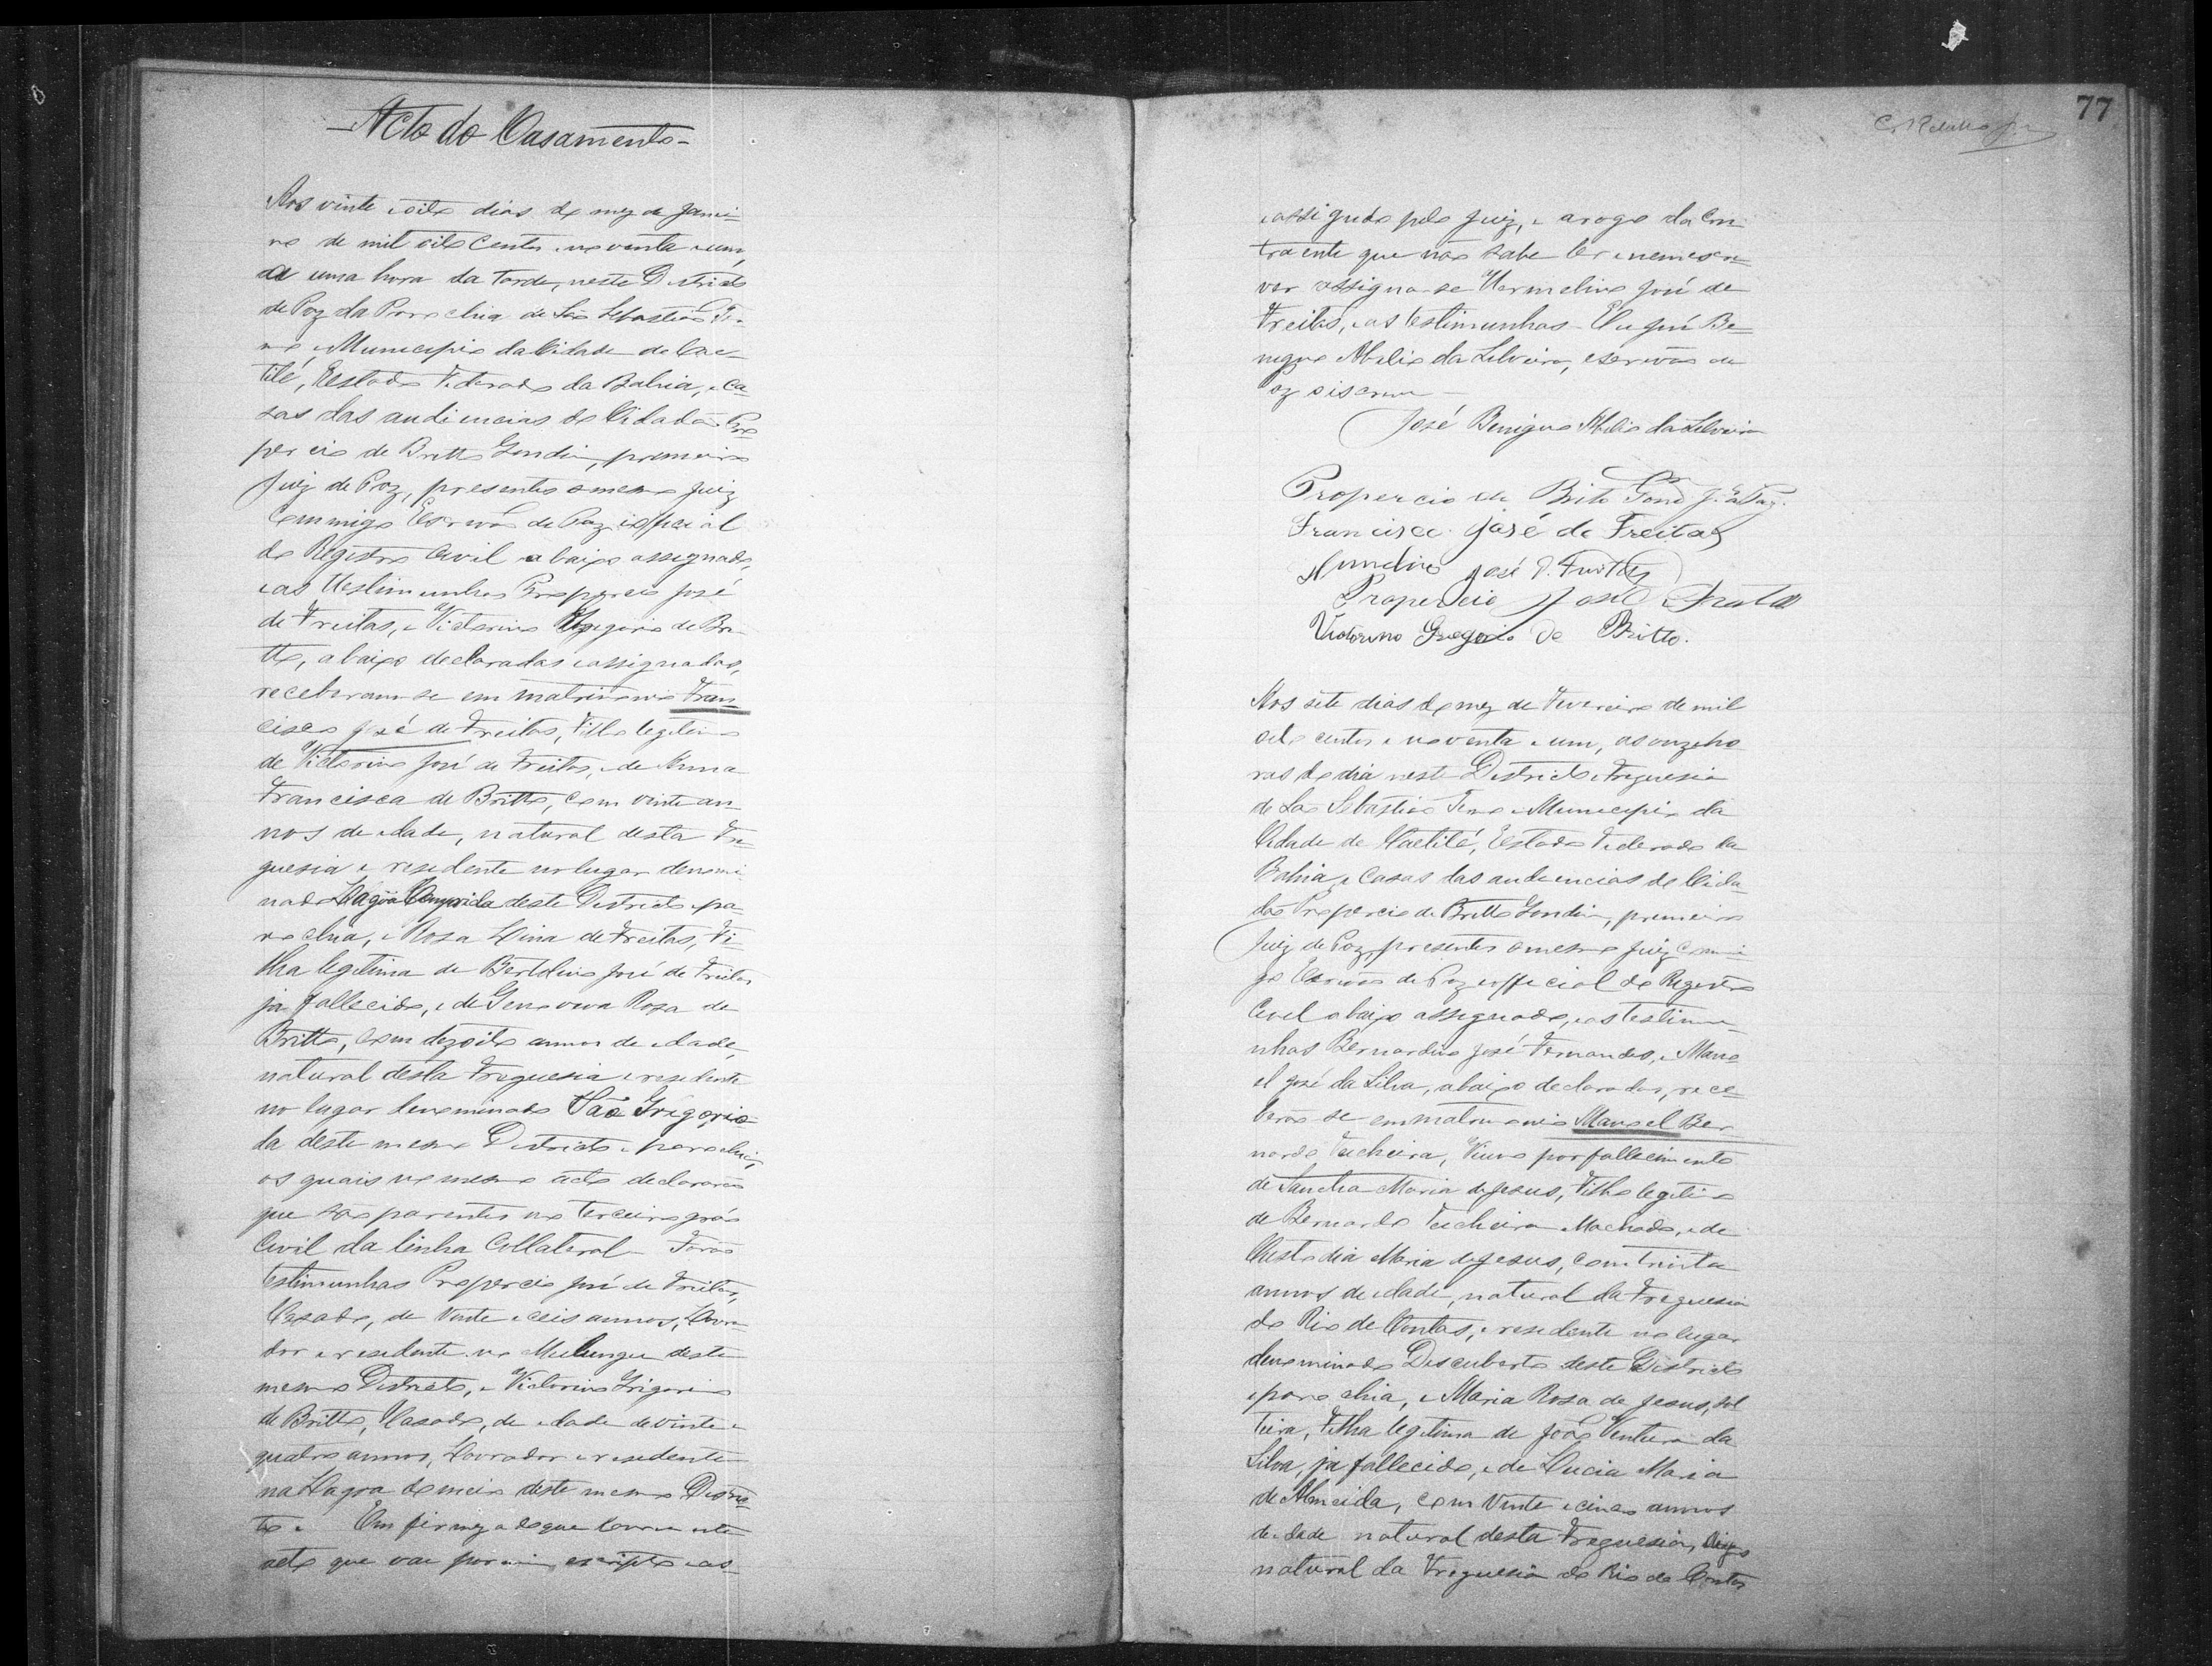 Acto do Casamento
Aos vinte e oito dias do mez de Janei-
ro de mil oito centos e noventa e um,
a uma hora da tarde, neste Districto
de Paz da Parochia de São Sebastião Ter-
mo e Municipio da Cidade de Cae-
tité, Estado Federado da Bahia, e ca-
sas das audiencias do Cidadão Pro-
percio de Britto Gondim, primeiro
Juiz de Paz, presentes o mesmo Juiz
Commigo Escrivão de Paz e official
do Registro Civil abaixo assignado,
e as testimunhas Propercio José
de Freitas, e Victorino Gregorio de Bri-
tto, abaixo declaradas e assignadas,
receberam-se em matrimonio Fran-
cisco José de Freitas, Filho legitimo
de Victorino José de Freitas, e de Anna
Francisca de Britto, com vinte an-
nos de idade, natural desta Fre-
guesia e residente no lugar denomi-
nado Lagôa Comprida deste Districto e pa-
rochia, e Rosa Lina de Freitas, Fi-
lha legitima de Bertolino José de Freitas
já fallecido, e de Genoveva Rosa de
Britto, com dezoito annos de idade,
natural desta Freguesia e residente
no lugar denominado São Gregorio
da deste mesmo Districto e parochia,
os quais no mesmo acto declararão
que são parentes no terceiro gráo
Civil da linha Collateral. Forão
testimunhas Propercio José de Freitas,
Casado, de vinte e ceis annos, Lavra-
dor e residente no Mulungu deste
mesmo Districto, e Victorino Grigorio
de Britto, Casado, de idade de vinte e
quatro annos, Lavrador e residente
na Lagoa do meio deste mesmo Distric-
to. Em firmeza do que lavrei este
acto que vae por mim escripto e as-
77
assignado pelo Juiz, e arogo da Con-
traente que não sabe ler e nem escre-
ver assigna-se Hermelino José de
Freitas, e as testimunhas. Eu José Be-
nigno Abilio da Silveira, escrivão de
Paz o iscrevi
José Benigno Abilio da Silveira
Propercio de Brito Gond J. de Paz.
Francisco José de Freitas
José d. Freitas
Propercio José Freitas
Victorino Gregorio de Britto.
Aos sete dias do mez de Fevereiro de mil
oito centos e noventa e um, as onze ho-
ras do dia neste Districto e Freguesia
de São Sebastião Termo e Municipio da
Cidade de Caetité, Estado Federado da
Bahia, e Casas das audiencias do Cida-
dão Propercio de Britto Gondim, primeiro
Juiz de Paz, presentes o mesmo Juiz commi-
go Escrivão de Paz e official do Registro
Civil abaixo assignado, e as testimu-
nhas Bernardino José Fernandes, e Mano-
el José da Silva, abaixo declarados, rece-
berão-se em matrimonio Manoel Ber-
nardo Teicheira, Viuvo por fallecimento
de Sancha Maria de Jesus, Filho legitimo
de Bernardo Teicheira Machado, e de
Custodia Maria de Jesus, com trinta
annos de idade, natural da Freguesia
do Rio de Contas, e residente no lugar
denominado Descuberto deste Districto
e parochia, e Maria Rosa de Jesus, sol-
teira, Filha legitima de João Ventura da
Silva, já fallecido, e de Lucia Maria
de Almeida, com vinte e cinco annos
de idade natural desta Freguesia, digo
natural da Freguesia do Rio de Contas